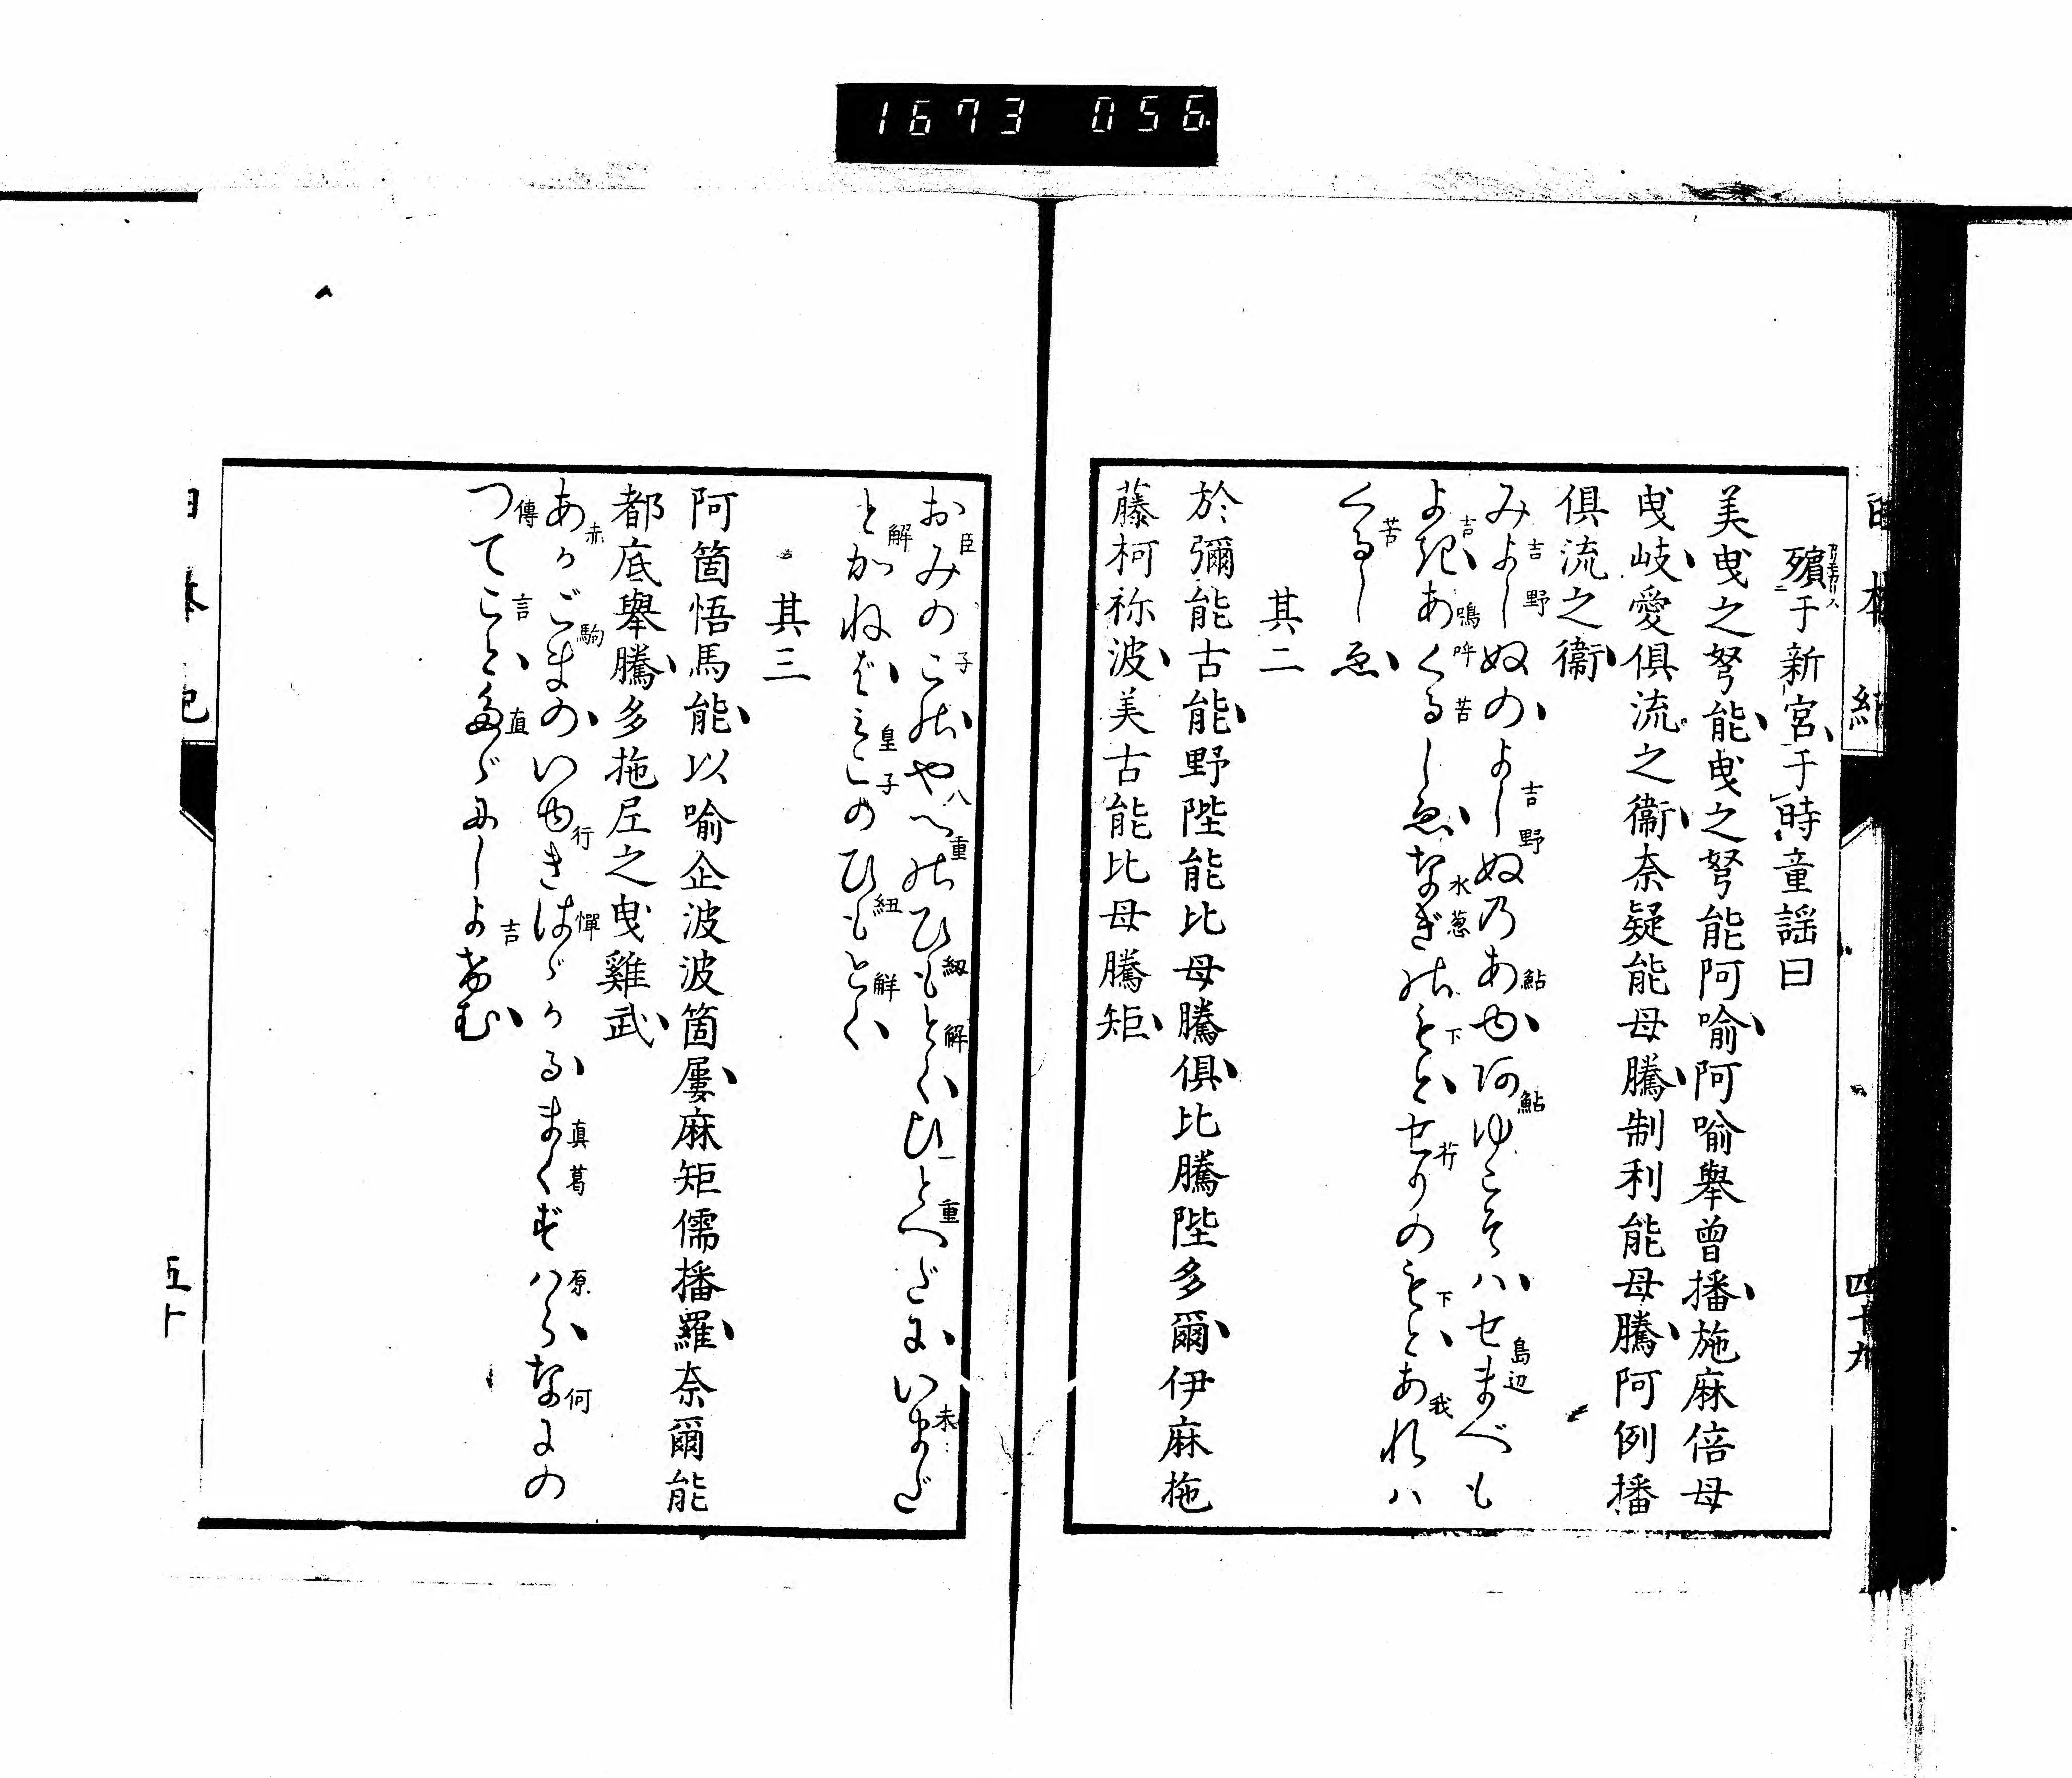 1673 056
殯于新宮于時童謡曰
美曳之弩能曳之弩能阿喩阿喩舉曽播施麻倍母
曳岐愛倶流之衞奈疑能母騰制利能母騰阿例播
倶流之衞
みよしぬのよしぬ乃あゆ阿ゆこそハせまべも
よきあくるしゑなぎのもとせりのもとあれハ
くるしゑ
其二
於彌能古能野陛能比母騰倶比騰陛多爾伊麻拖
藤柯祢波美古能比母騰矩
おみのこのやへのひもとくひとへだにいまだ
とかねばみこのひもとく
其三
阿箇悟馬能以喩企波波箇屢麻矩儒播羅奈爾能
都底舉騰多拖尼之曳雞武
あかごまのいゆきはゞかるまくずハらなにの
つてことたゞにしよけむ
五十